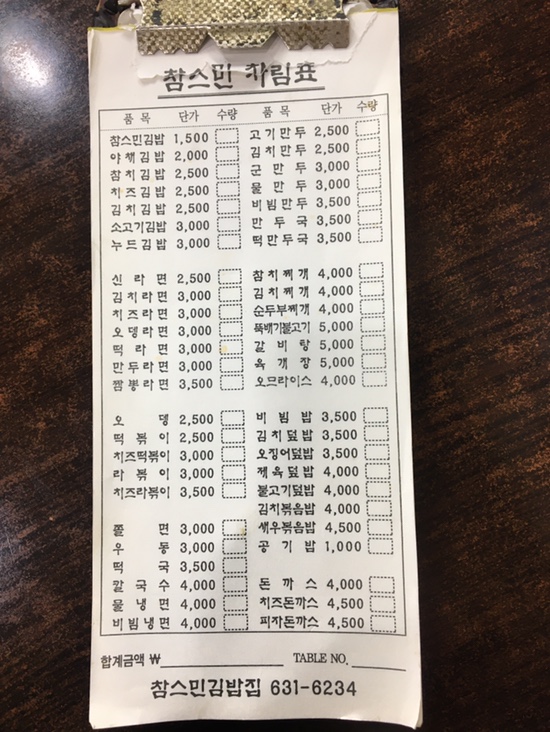 참스민 차림표
품목 단가 수량 품목 단가 수량
참스민김밥 1,500 고기만두 2,500
야채김밥 2,000 김치만두 2,500
참치김밥 2,500 군만두 3,000
치즈김밥 2,500 물만두 3,000
김치김밥 2,500 비빔만두 3,500
소고기김밥 3,000 만두국 3,500
누드김밥 3,000 떡만두국 3,500
신라면 2,500 참치찌개 4,000
김치라면 3,000 김치찌개 4,000
치즈라면 3,000 순두부찌개 4,000
오뎅라면 3,000 뚝배기불고기 5,000
떡라면 3,000 갈비탕 5,000
만두라면 3,000 육개장 5,000
짬뽕라면 3,500 오므라이스 4,000
오뎅 2,500 비빔밥 3,500
떡볶이 2,500 김치덮밥 3,500
치즈떡볶이 3,000 오징어덮밥 3,500
라볶이 3,000 제육덮밥 4,000
치즈라볶이 3,500 불고기덮밥 4,000
김치볶음밥 4,000
쫄면 3,000 새우볶음밥 4,500
우동 3,000 공기밥 1,000
떡국 3,500
칼국수 4,000 돈까스 4,000
물냉면 4,000 치즈돈까스 4,500
비빔냉면 4,000 피자돈까스 4,500
합계금액 ₩ TABLE NO.
참스민김밥집 631-6234